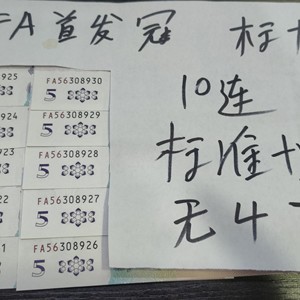 FA首发冠 标十
10连
标准十
无4
925 FA56308930
5
924 FA56308929
5
923 FA56308928
5
22 FA56308927
5
1 FA56308926
5